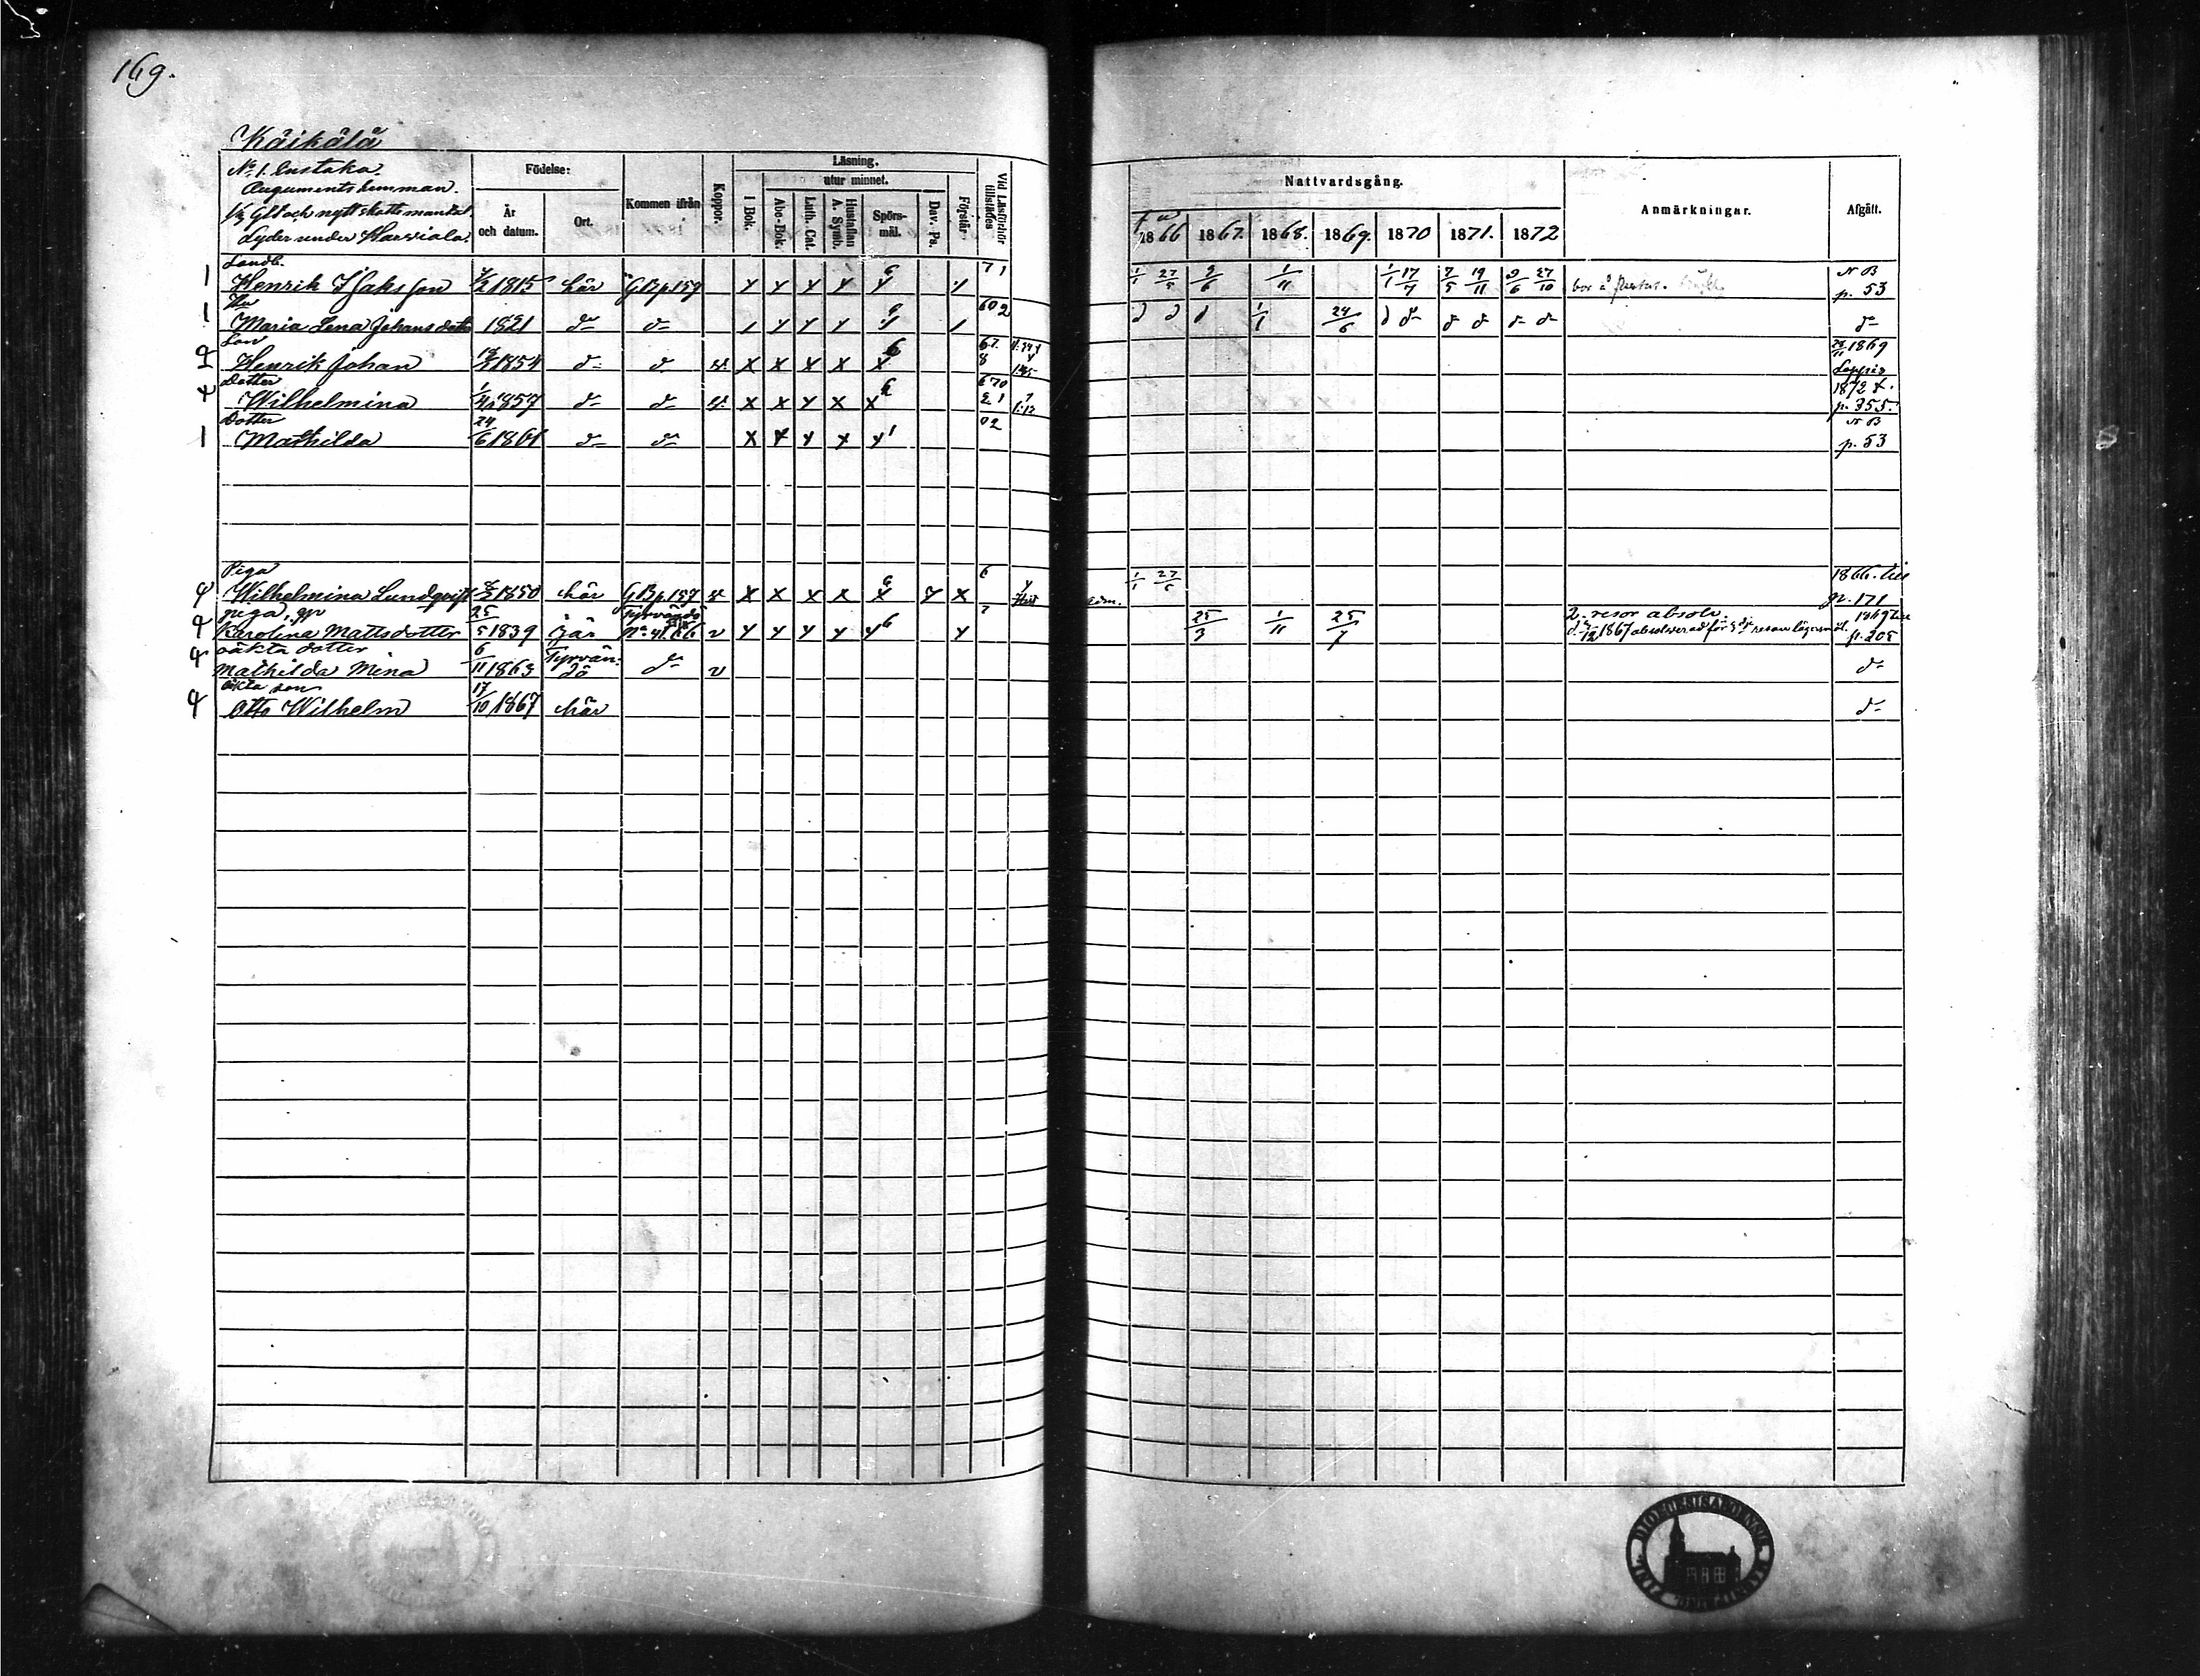 169.
Käikälä
No 1. Eustaka.
Auguments hemman.
1/2 Glt och nytt skatte mantal.
Lyder under Harviala.
Födelse:
År och datum.
Ort.
Kommen ifrån
Koppor.
Läsning.
utur minnet.
I Bok.
Abc-Bok.
Luth. Cat.
Hustaflan A. Symb.
Spörsmål.
Dav. Ps.
Förstår.
Vid Läsförhör tillstädes
Nattvardsgång.
1866 1867. 1868. 1869. 1870 1871. 1872
Anmärkningar.
Afgått.
Landb.
1 Henrik Isaksson 1815 här GB p 159 y y y y y 6 71 1/1 27/5 2/6 1/11 1/1 17/7 7/5 19/11 9/6 27/10 NB p. 53
Hu
1 Maria Lena Johansdotter 1821 d:o d:o 1/1 24/6 d:o
Son
2 Henrik Johan 1854 d:o d:o x x x x x 6 67. 8 1869 Loppis
Dotter
Wilhelmina 1857 d:o d:o x x y x x 670 21 1872 p. 355.
Dotter
1 Mathilda 24/6 1861 d:o d:o x y y y 1 02 NB p. 53
Piga
Wilhelmina Lundqvist 1850 här GB p. 157 x x x x x 6 x 6 adm. 1/1 27/5 1866. till p. 171
piga, qp
Karolina Mattsdotter 25/5 1839 Tyrvändö No 41. 66 v y y y y y 6 y 7 25/3 1/11 25/7 2. resor absolv. 1867 absolverad för 3dje resan lägersmål. 1869 till p. 205
oäkta dotter
Mathilda Mina 6/11 1863 Tyrvändö d:o v d:o
oäkta son
Otto Wilhelm 17/10 1867 här d:o